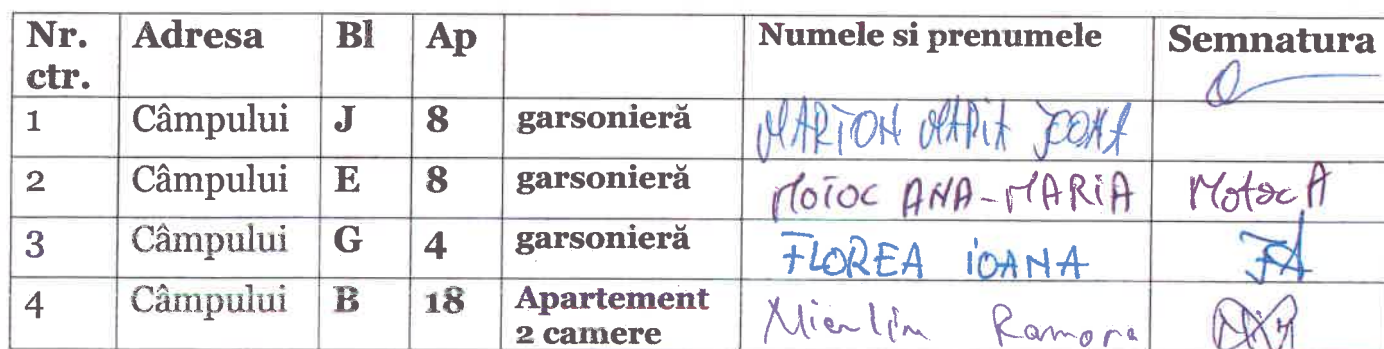 Nr. ctr. Adresa Bl Ap Numele si prenumele Semnatura
1 Câmpului J 8 garsonieră MARTON MARIA IOANA
2 Câmpului E 8 garsonieră MOTOC ANA-MARIA Motoc A
3 Câmpului G 4 garsonieră FLOREA IOANA
4 Câmpului B 18 Apartement 2 camere Ramona